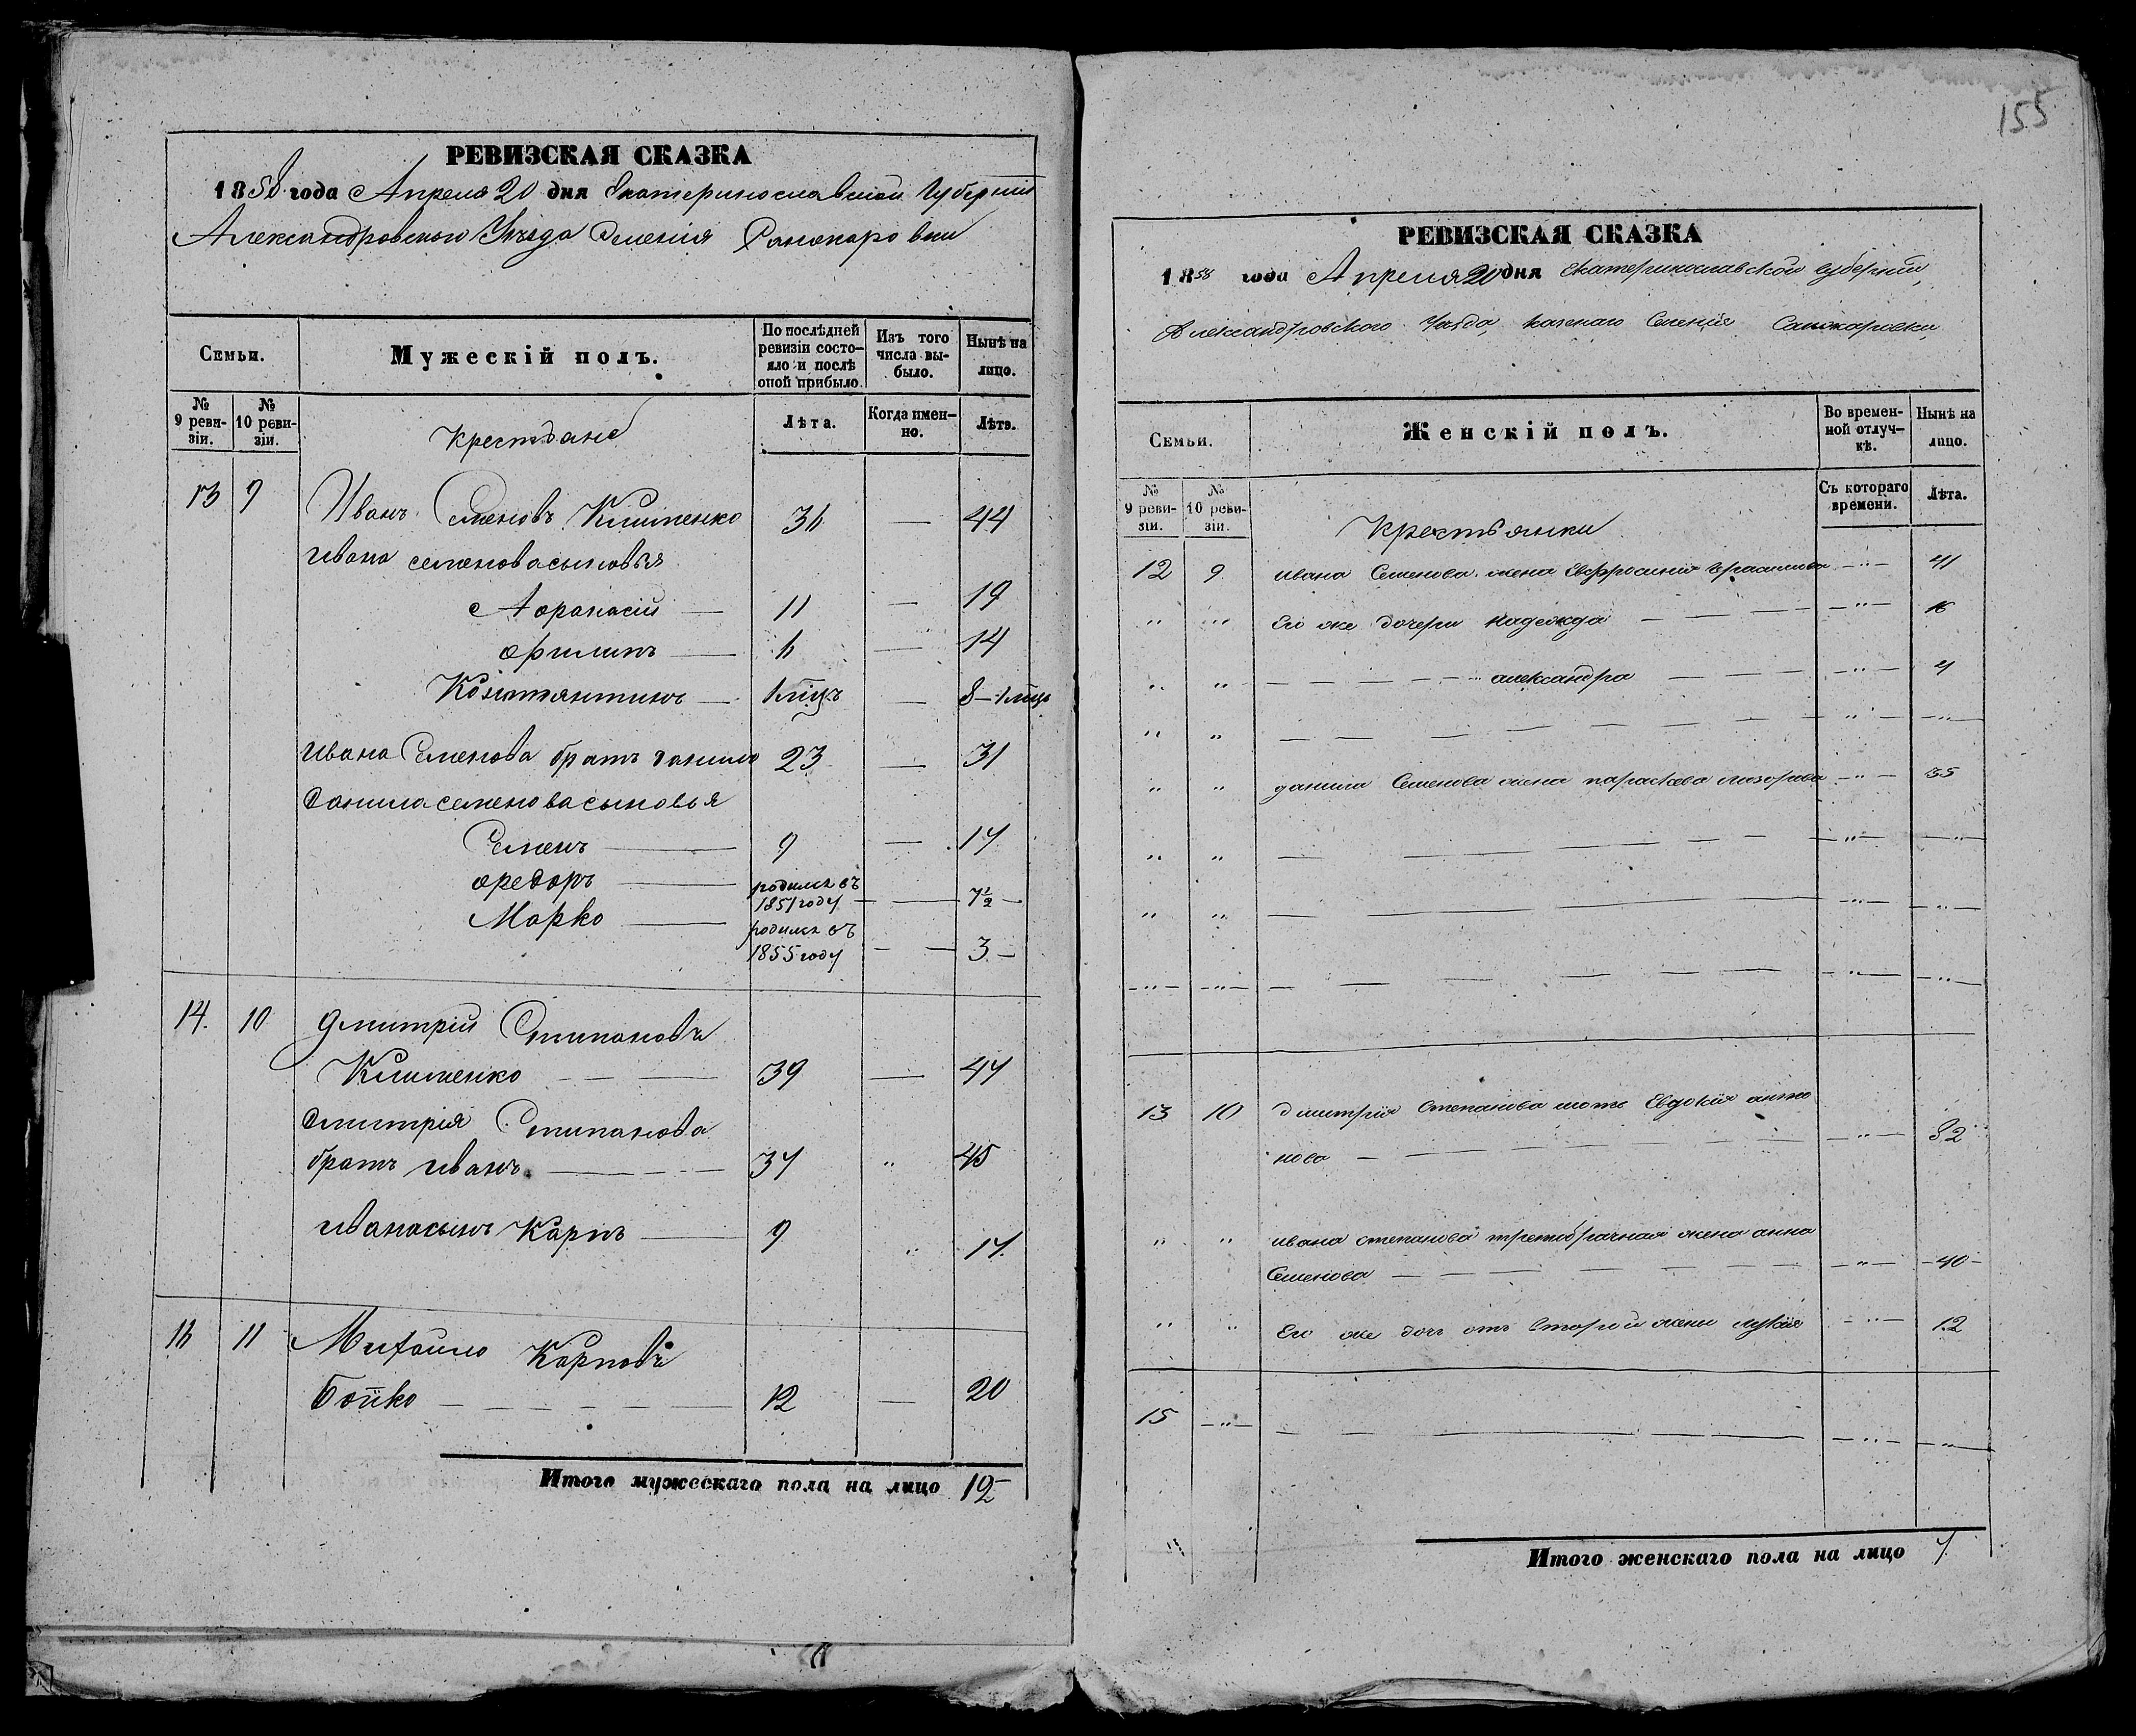 155
РЕВИЗСКАЯ СКАЗКА
1858 года Апреля 20 дня Екатеринославской Губерніи
Александровскаго Уезда Селенія
Семьи.
Мужескій полъ.
По послѣдней ревизіи состояло и послѣ оной прибыло.
Изъ того числа выбыло.
Нынѣ на лицо.
№ 9 ревизіи.
№ 10 ревизіи.
Крестьяне
Лѣта.
Когда именно.
Лѣта.
13 9 Иванъ Семеновъ Клименко 36 — 44
Ивана Семенова сыновья
Афанасій — 11 — 19
Филипъ — 6 — 14
Константинъ — 1 мцъ — 8 — 1 мцъ
Ивана Семенова братъ Данило 23 — 31
Данила Семенова сыновья
Семенъ — 9 — 17
Федоръ — родился въ 1851 году — — 7½ —
Марко — родился въ 1855 году — — 3 —
14. 10 Дмитрій Стипановъ
Клименко — — 39 — 47
Дмитрія Стипанова
братъ Иванъ — — — 37 " 45
Ивана сынъ Карпъ — 9 " 17.
16 11 Михайло Карповъ
Бойко — — — — — 12 — 20
Итого мужескаго пола на лицо 12
РЕВИЗСКАЯ СКАЗКА
1858 года Апреля 20 дня Екатеринославской губерніи,
Александровского Уезда, казенаго Селенія
Семьи.
Женскій полъ.
Во временной отлучкѣ.
Нынѣ на лицо.
№ 9 ревизіи.
№ 10 ревизіи.
Крестьянки
Съ котораго времени.
Лѣта.
12 9 Ивана Семенова жена Евфросинія — " — 41
" " Его же дочери Надежда — — — — " — 16
" " — — — — — александра — — — — " — 7
" " — — — — — — — " — — " —
" " данила Семенова жена параскева — " — 35
" " — — — — — — — " — — " —
" " — — — — — — — " — — " —
— " — — " — — — — — — — — " — — " —
13 10 Димитрія Степанова мать Евдокія анто
нова — — — — — — — " — 82
" " ивана степанова третобрачная жена анна
Семенова — — — — — — — " — — 40 —
" " Его же дочь отъ второй жены лукія — " — 12
15 — " — — — — — — — " — — " —
Итого женскаго пола на лицо 7.